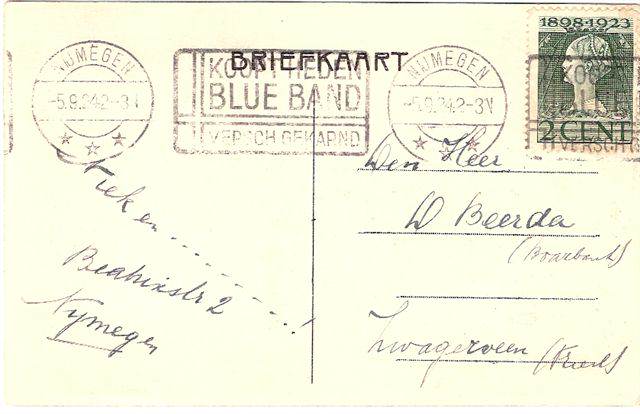 BRIEFKAART
NIJMEGEN
-5.9.24.2-3N
KOOPT HEDEN
BLUE BAND
VERSCH GEKARND
NIJMEGEN
-5.9.24.2-3N
1898-1923
2 CENT
VERSCH
Den Heer
D Beerda
Zwagerveen
en ..........!
Beatrixstr 2
Nymegen